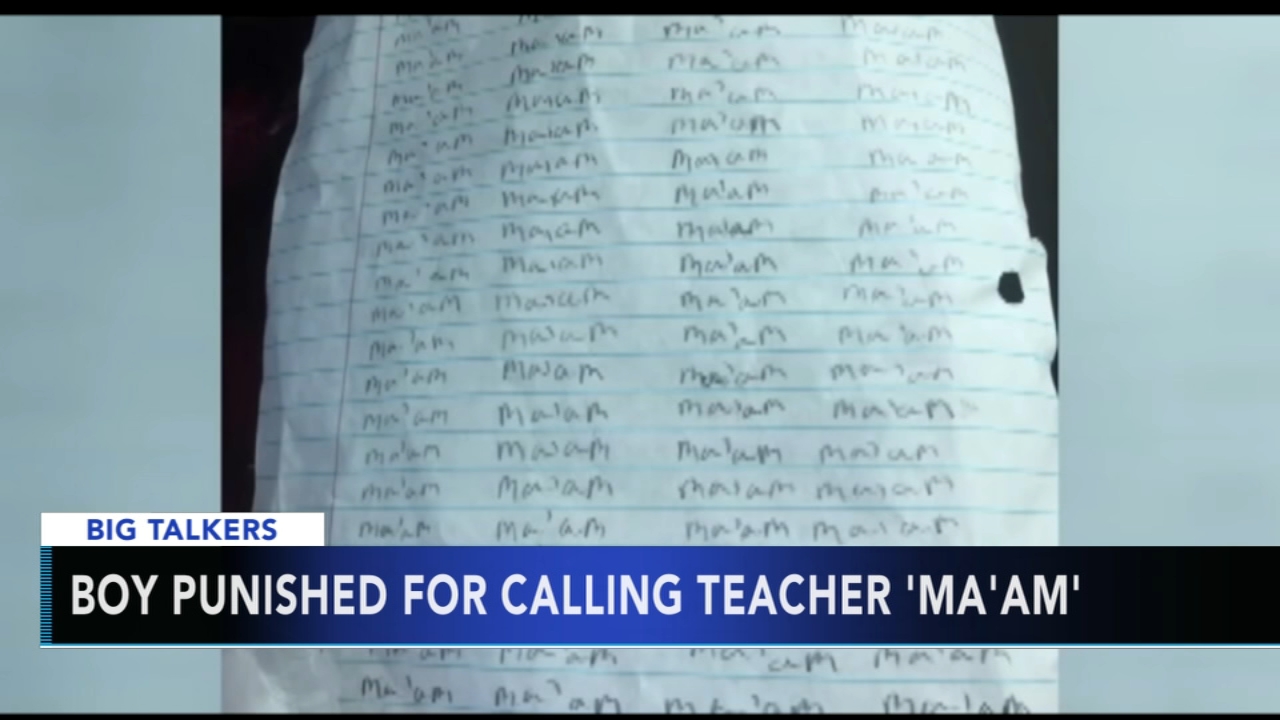 ma'am
ma'am ma'am ma'am ma'am
ma'am ma'am ma'am ma'am
ma'am ma'am ma'am ma'am
ma'am ma'am ma'am ma'am
ma'am ma'am ma'am ma'am
ma'am ma'am ma'am ma'am
ma'am ma'am ma'am ma'am
ma'am ma'am ma'am ma'am
ma'am ma'am ma'am ma'am
ma'am ma'am ma'am ma'am
ma'am ma'am ma'am ma'am
ma'am ma'am ma'am ma'am
ma'am ma'am ma'am ma'am
ma'am ma'am ma'am ma'am
ma'am ma'am ma'am ma'am
BIG TALKERS
BOY PUNISHED FOR CALLING TEACHER 'MA'AM'
ma'am ma'am ma'am ma'am
ma'am ma'am ma'am ma'am